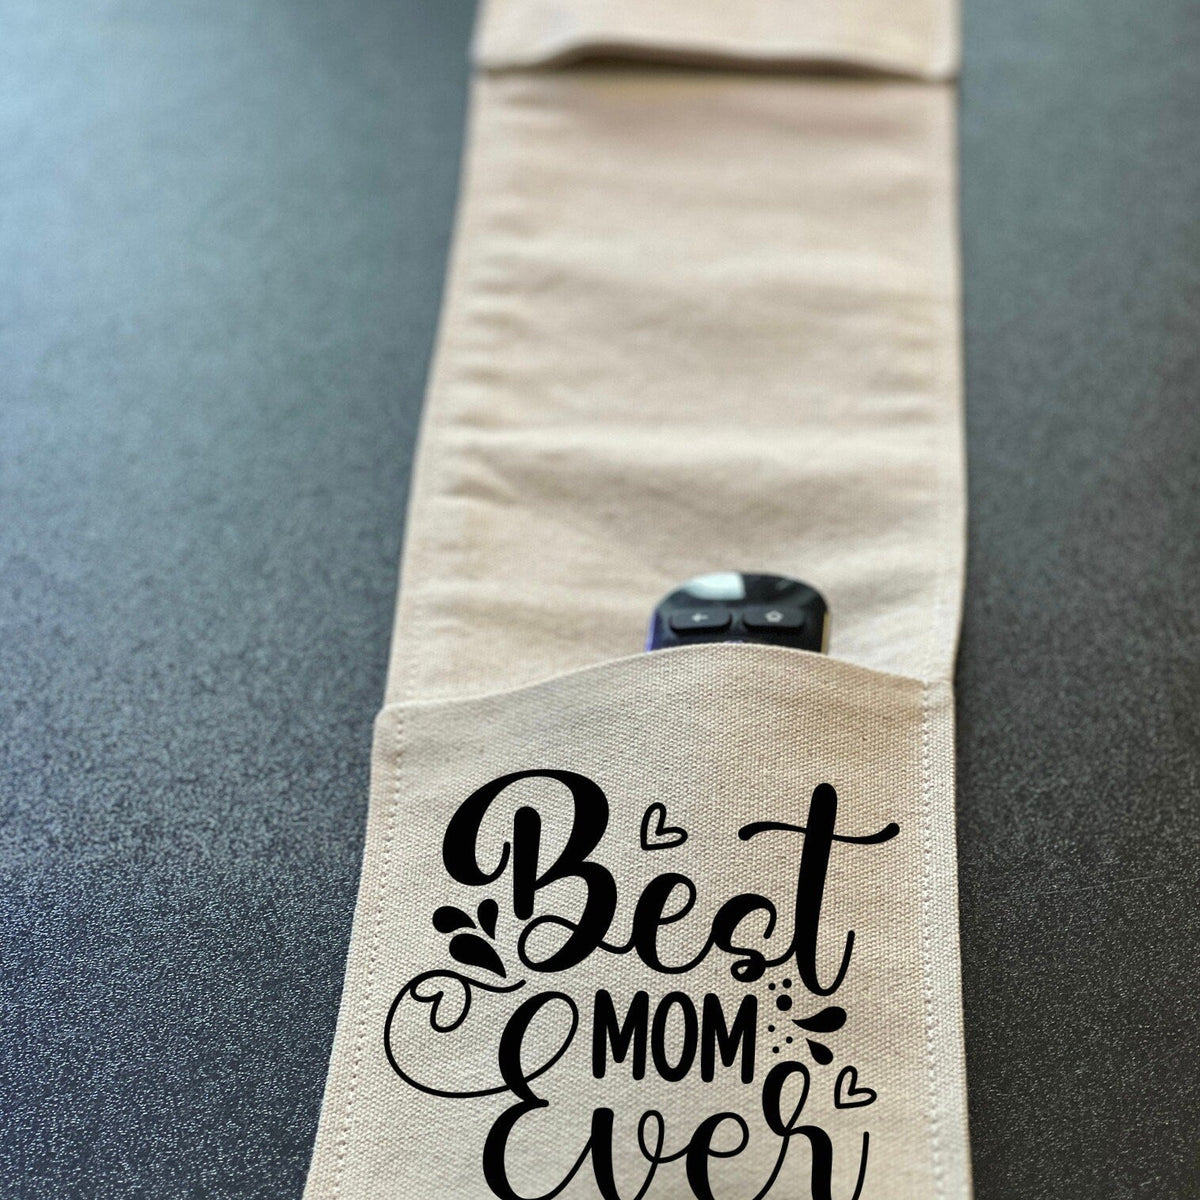 Best
MOM
Ever